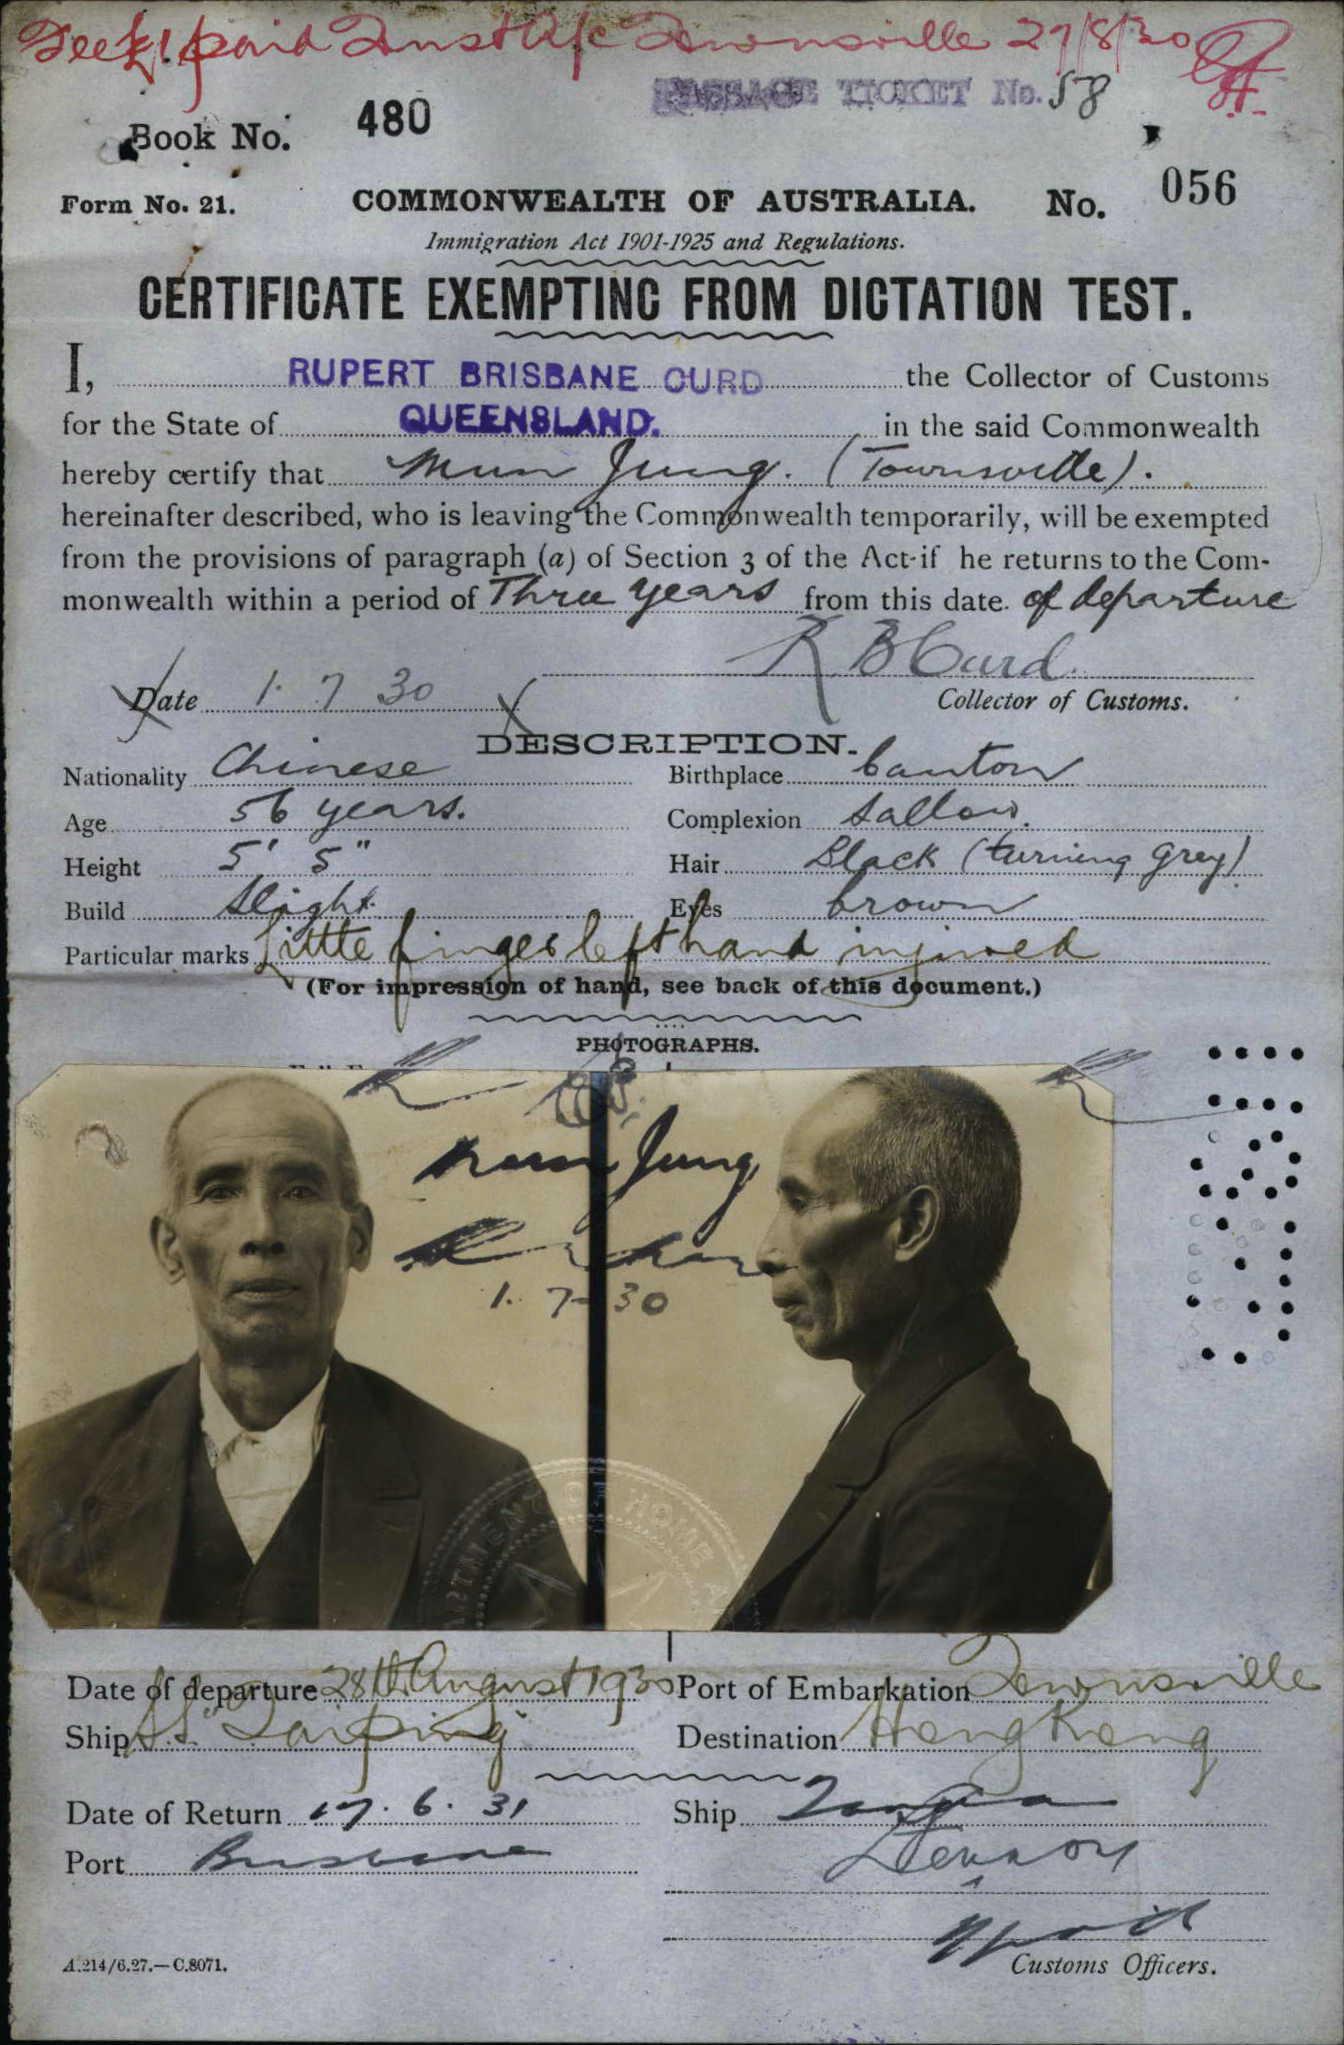 Fee £1 paid Trust A/c Townsville 27/8/30
PASSAGE TICKET No. 58
Book No. 480
Form No. 21. COMMONWEALTH OF AUSTRALIA. No. 056
Immigration Act 1901-1925 and Regulations.
CERTIFICATE EXEMPTING FROM DICTATION TEST.
I, RUPERT BRISBANE CURD the Collector of Customs
for the State of QUEENSLAND. in the said Commonwealth
hereby certify that Mun Jung. (Townsville).
hereinafter described, who is leaving the Commonwealth temporarily, will be exempted
from the provisions of paragraph (a) of Section 3 of the Act if he returns to the Com-
monwealth within a period of Three years from this date. of departure
R B Curd.
Date 1. 7 30 Collector of Customs.
DESCRIPTION.
Nationality Chinese Birthplace Canton
Age 56 years. Complexion Sallow.
Height 5' 5" Hair Black (turning grey)
Build Slight Eyes brown
Particular marks Little finger left hand injured
(For impression of hand, see back of this document.)
PHOTOGRAPHS.
Mun Jung
1. 7 - 30
Date of departure 28th August 1930 Port of Embarkation Townsville
Ship S.S. "Taiping" Destination Hong Kong
Date of Return 17. 6. 31 Ship Tanda
Port Brisbane
Customs Officers.
A.214/6.27.—C.8071.